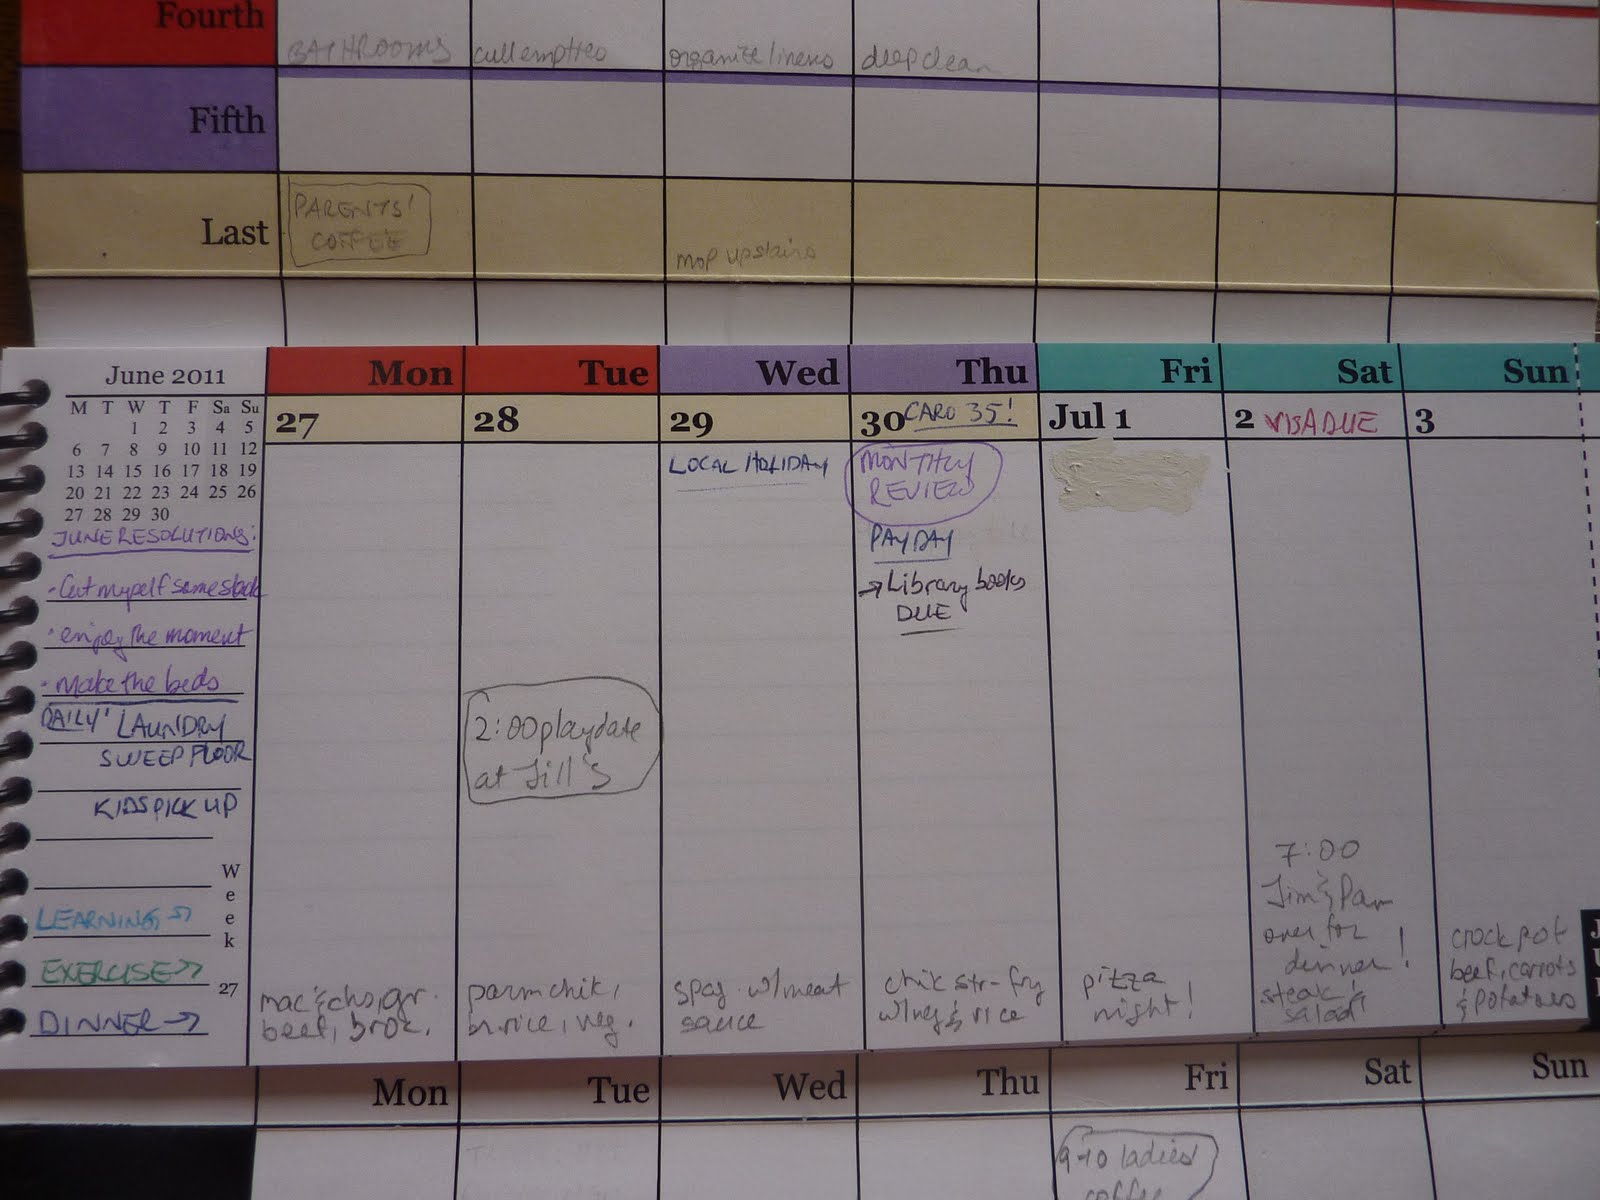 Fourth
BATHROOMS
cull empties
organize linens
deep clean
Fifth
Last
PARENTS'
COFFEE
mop upstairs
June 2011
Mon
Tue
Wed
Thu
Fri
Sat
Sun
M T W T F Sa Su
1 2 3 4 5
6 7 8 9 10 11 12
13 14 15 16 17 18 19
20 21 22 23 24 25 26
27 28 29 30
27
28
29
30 CARO 35!
Jul 1
2 VISA DUE
3
JUNE RESOLUTIONS:
- Cut myself some slack
· enjoy the moment
· make the beds
DAILY: LAUNDRY
SWEEP FLOOR
KIDS PICK UP
Week
27
LEARNING →
EXERCISE →
DINNER →
mac & chs, gr.
beef, broc.
2:00 playdate
at Jill's
parm chik,
br. rice, veg.
LOCAL HOLIDAY
spag. w/meat
sauce
MONTHLY
REVIEW
PAYDAY
→ Library books
DUE
chik str-fry
w/veg & rice
pizza
night!
7:00
Jim & Pam
over for
dinner!
steak &
salad!
crock pot
beef, carrots
& potatoes
Mon
Tue
Wed
Thu
Fri
Sat
Sun
9-10 ladies'
coffee